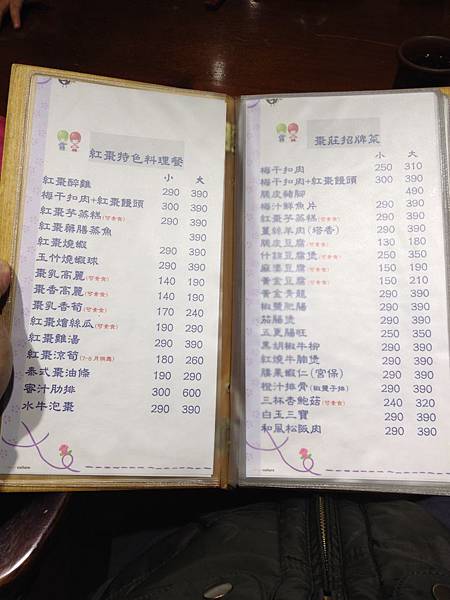 紅棗特色料理餐
小 大
紅棗醉雞 290 390
梅干扣肉+紅棗饅頭 300 390
紅棗芋茶糕(可素食) 290 390
紅棗藥膳蒸魚 390
紅棗燒蝦 290 390
玉竹燒蝦球 290 390
棗乳高麗(可素食) 140 190
棗香高麗(可素食) 140 190
棗乳香筍(可素食) 170 240
紅棗燴絲瓜(可素食) 190 290
紅棗雞湯 290 390
紅棗涼筍(7-8月供應) 180 260
泰式棗油條 190 290
蜜汁肋排 300 600
水牛泡棗 290 390
棗莊招牌菜
小 大
梅干扣肉 250 310
梅干扣肉+紅棗饅頭 300 390
脆皮豬腳 490
梅汁鮮魚片 290 390
紅棗芋茶糕(可素食) 290 390
薑絲羊肉(塔香) 290 390
脆皮豆腐(可素食) 130 180
什錦豆腐煲(可素食) 250 350
麻婆豆腐(可素食) 150 190
黃金豆腐(可素食) 150 210
黃金青龍 290 390
椒鹽肥腸 290 390
茄腸煲 290 390
五更腸旺 250 350
黑胡椒牛柳 290 390
紅燒牛腩煲 290 390
腰果蝦仁(宮保) 290 390
橙汁排骨(椒鹽子排) 290 390
三杯杏鮑菇(可素食) 240 320
白玉三寶 290 390
和風松阪肉 290 390